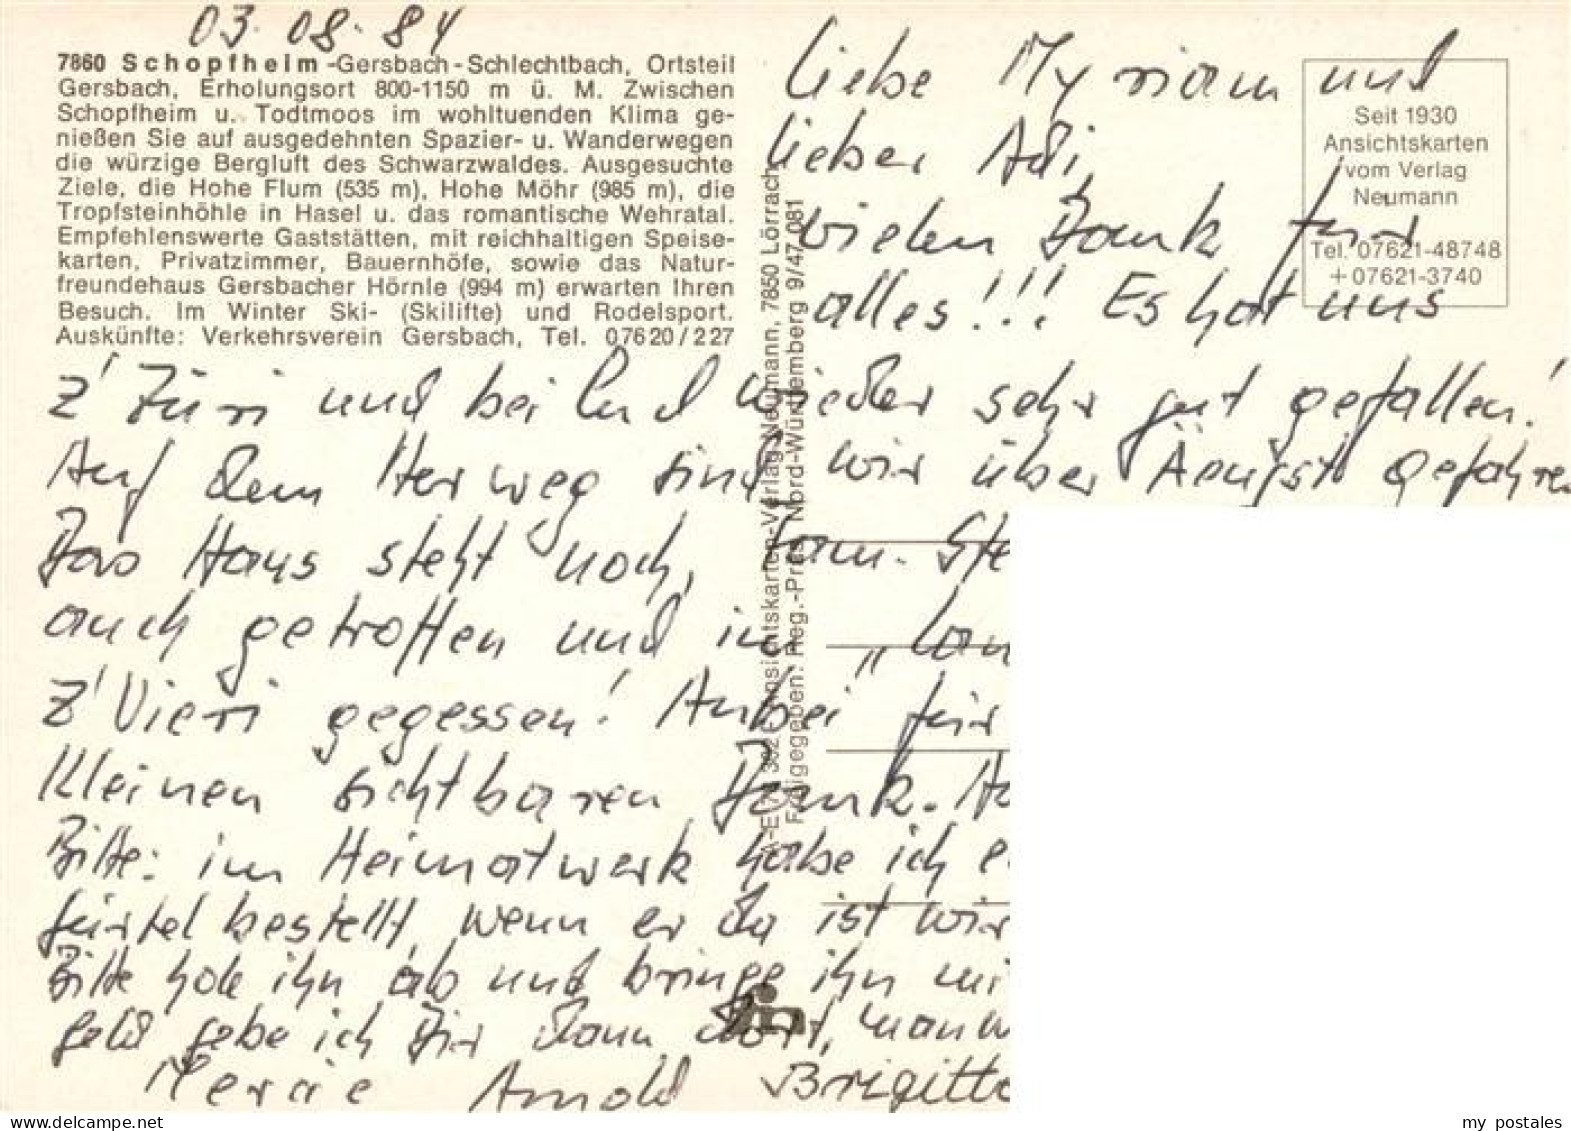 03.08.84
7860 Schopfheim-Gersbach-Schlechtbach, Ortsteil
Gersbach, Erholungsort 800-1150 m ü. M. Zwischen
Schopfheim u. Todtmoos im wohltuenden Klima ge-
nießen Sie auf ausgedehnten Spazier- u. Wanderwegen
die würzige Bergluft des Schwarzwaldes. Ausgesuchte
Ziele, die Hohe Flum (535 m), Hohe Möhr (985 m), die
Tropfsteinhöhle in Hasel u. das romantische Wehratal.
Empfehlenswerte Gaststätten, mit reichhaltigen Speise-
karten, Privatzimmer, Bauernhöfe, sowie das Natur-
freundehaus Gersbacher Hörnle (994 m) erwarten Ihren
Besuch. Im Winter Ski- (Skilifte) und Rodelsport.
Auskünfte: Verkehrsverein Gersbach, Tel. 07620/227
Seit 1930
Ansichtskarten
vom Verlag
Neumann
Tel. 07621-48748
+ 07621-3740
Ansichtskarten-Verlag Neumann, 7850 Lörrach
Freigegeben: Reg.-Präs. Nord-Württemberg 9/47 081
Liebe Myriam und
lieber Adi,
vielen Dank für
alles!!! Es hat uns
z'Züri und bei Eud wieder sehr gut gefallen!
Auf dem Herweg sind wir über Äeugst gefahren
Das Haus steht noch, Fam. Ste
auch getroffen und im „Lan
z'Vieri gegessen! Anbei für
kleinen sichtbaren Dank.
Bitte: im Heimatwerk habe ich e
fürtel bestellt, wenn er da ist wir
Bitte hole ihn ab und bringe ihn mi
geld gebe ich Dir dann dort,
Mercie Arnold Brigitte
my postales